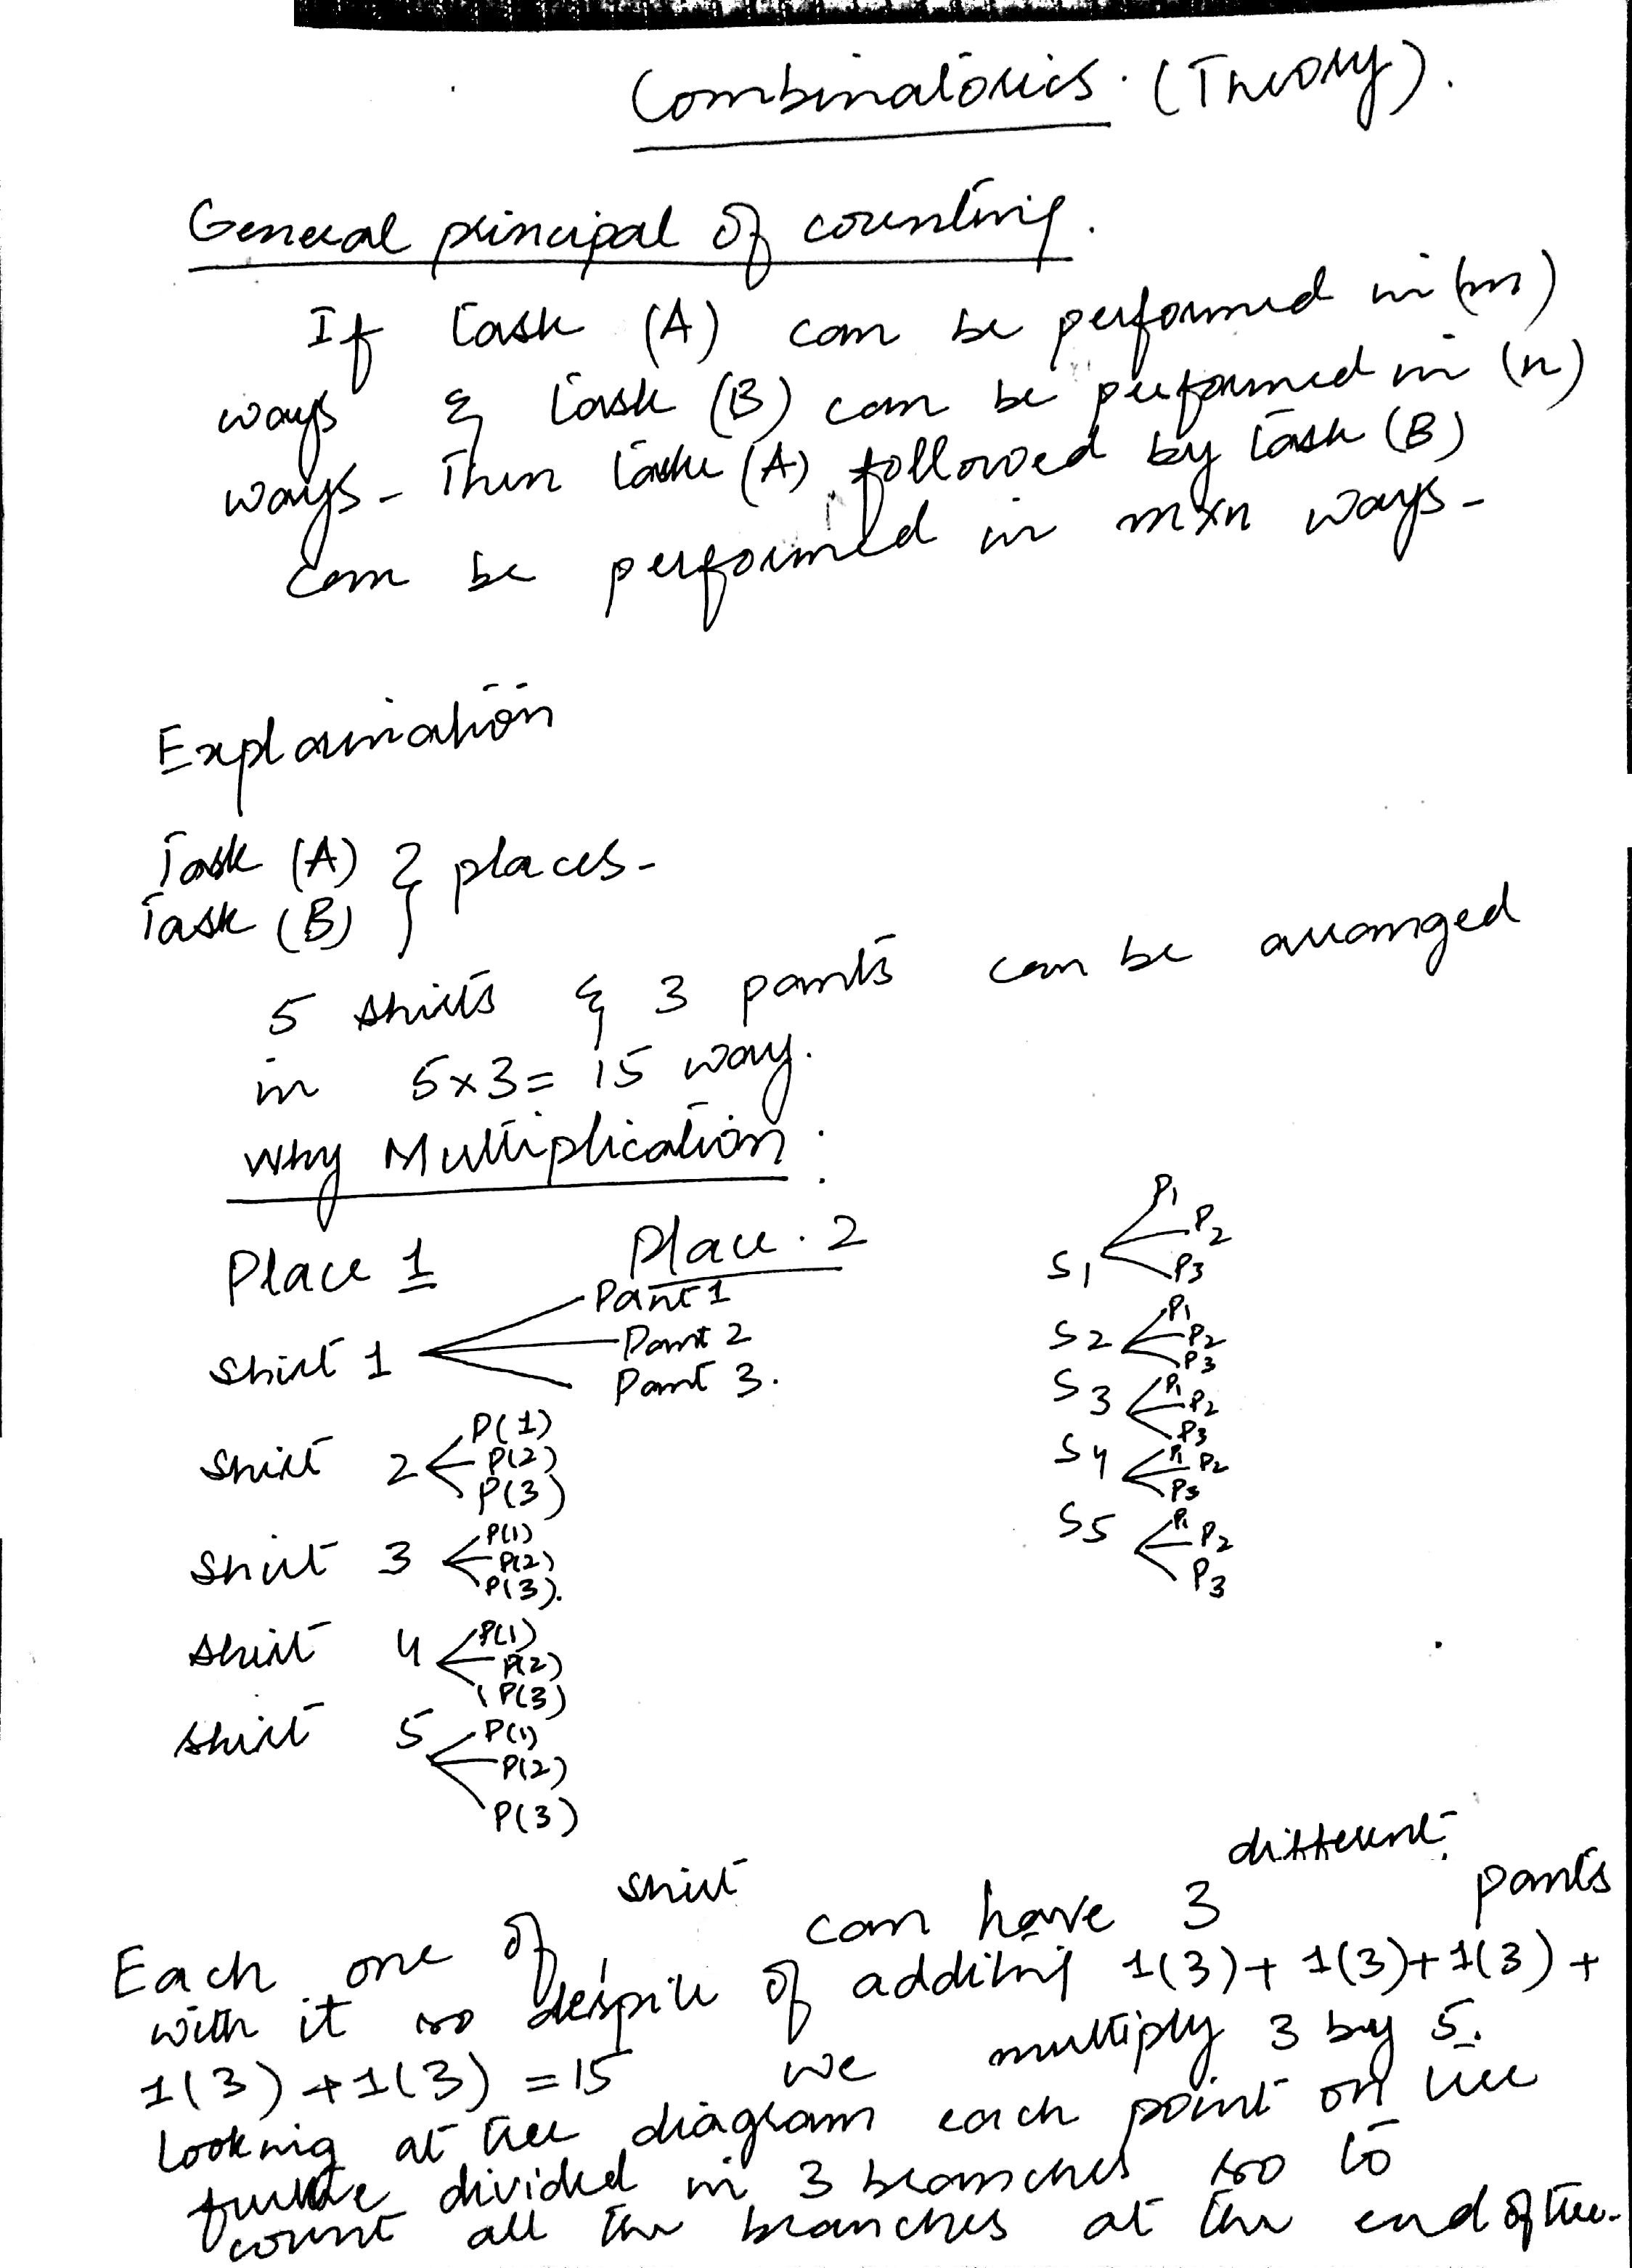 Combinatorics. (Theory).
General principal of counting.
If task (A) can be performed in (m)
ways & task (B) can be performed in (n)
ways. Then task (A) followed by task (B)
can be performed in m×n ways.
Explaination
Task (A) } places.
Task (B)
5 shirts & 3 pants can be arranged
in 5×3= 15 way.
Why Multiplication:
Place 1 Place. 2
Shirt 1
Pant 1
Pant 2
Pant 3.
Shirt 2
P(1)
P(2)
P(3)
Shirt 3
P(1)
P(2)
P(3).
Shirt 4
P(1)
P(2)
P(3)
Shirt 5
P(1)
P(2)
P(3)
S1
P1
P2
P3
S2
P1
P2
P3
S3
P1
P2
P3
S4
P1
P2
P3
S5
P1
P2
P3
Each one of shirt can have 3 different pants
with it so despite of adding 1(3)+ 1(3)+1(3)+
1(3)+1(3) =15 we multiply 3 by 5.
Looking at tree diagram each point on tree
divided in 3 branches so to
count all the branches at the end of tree.